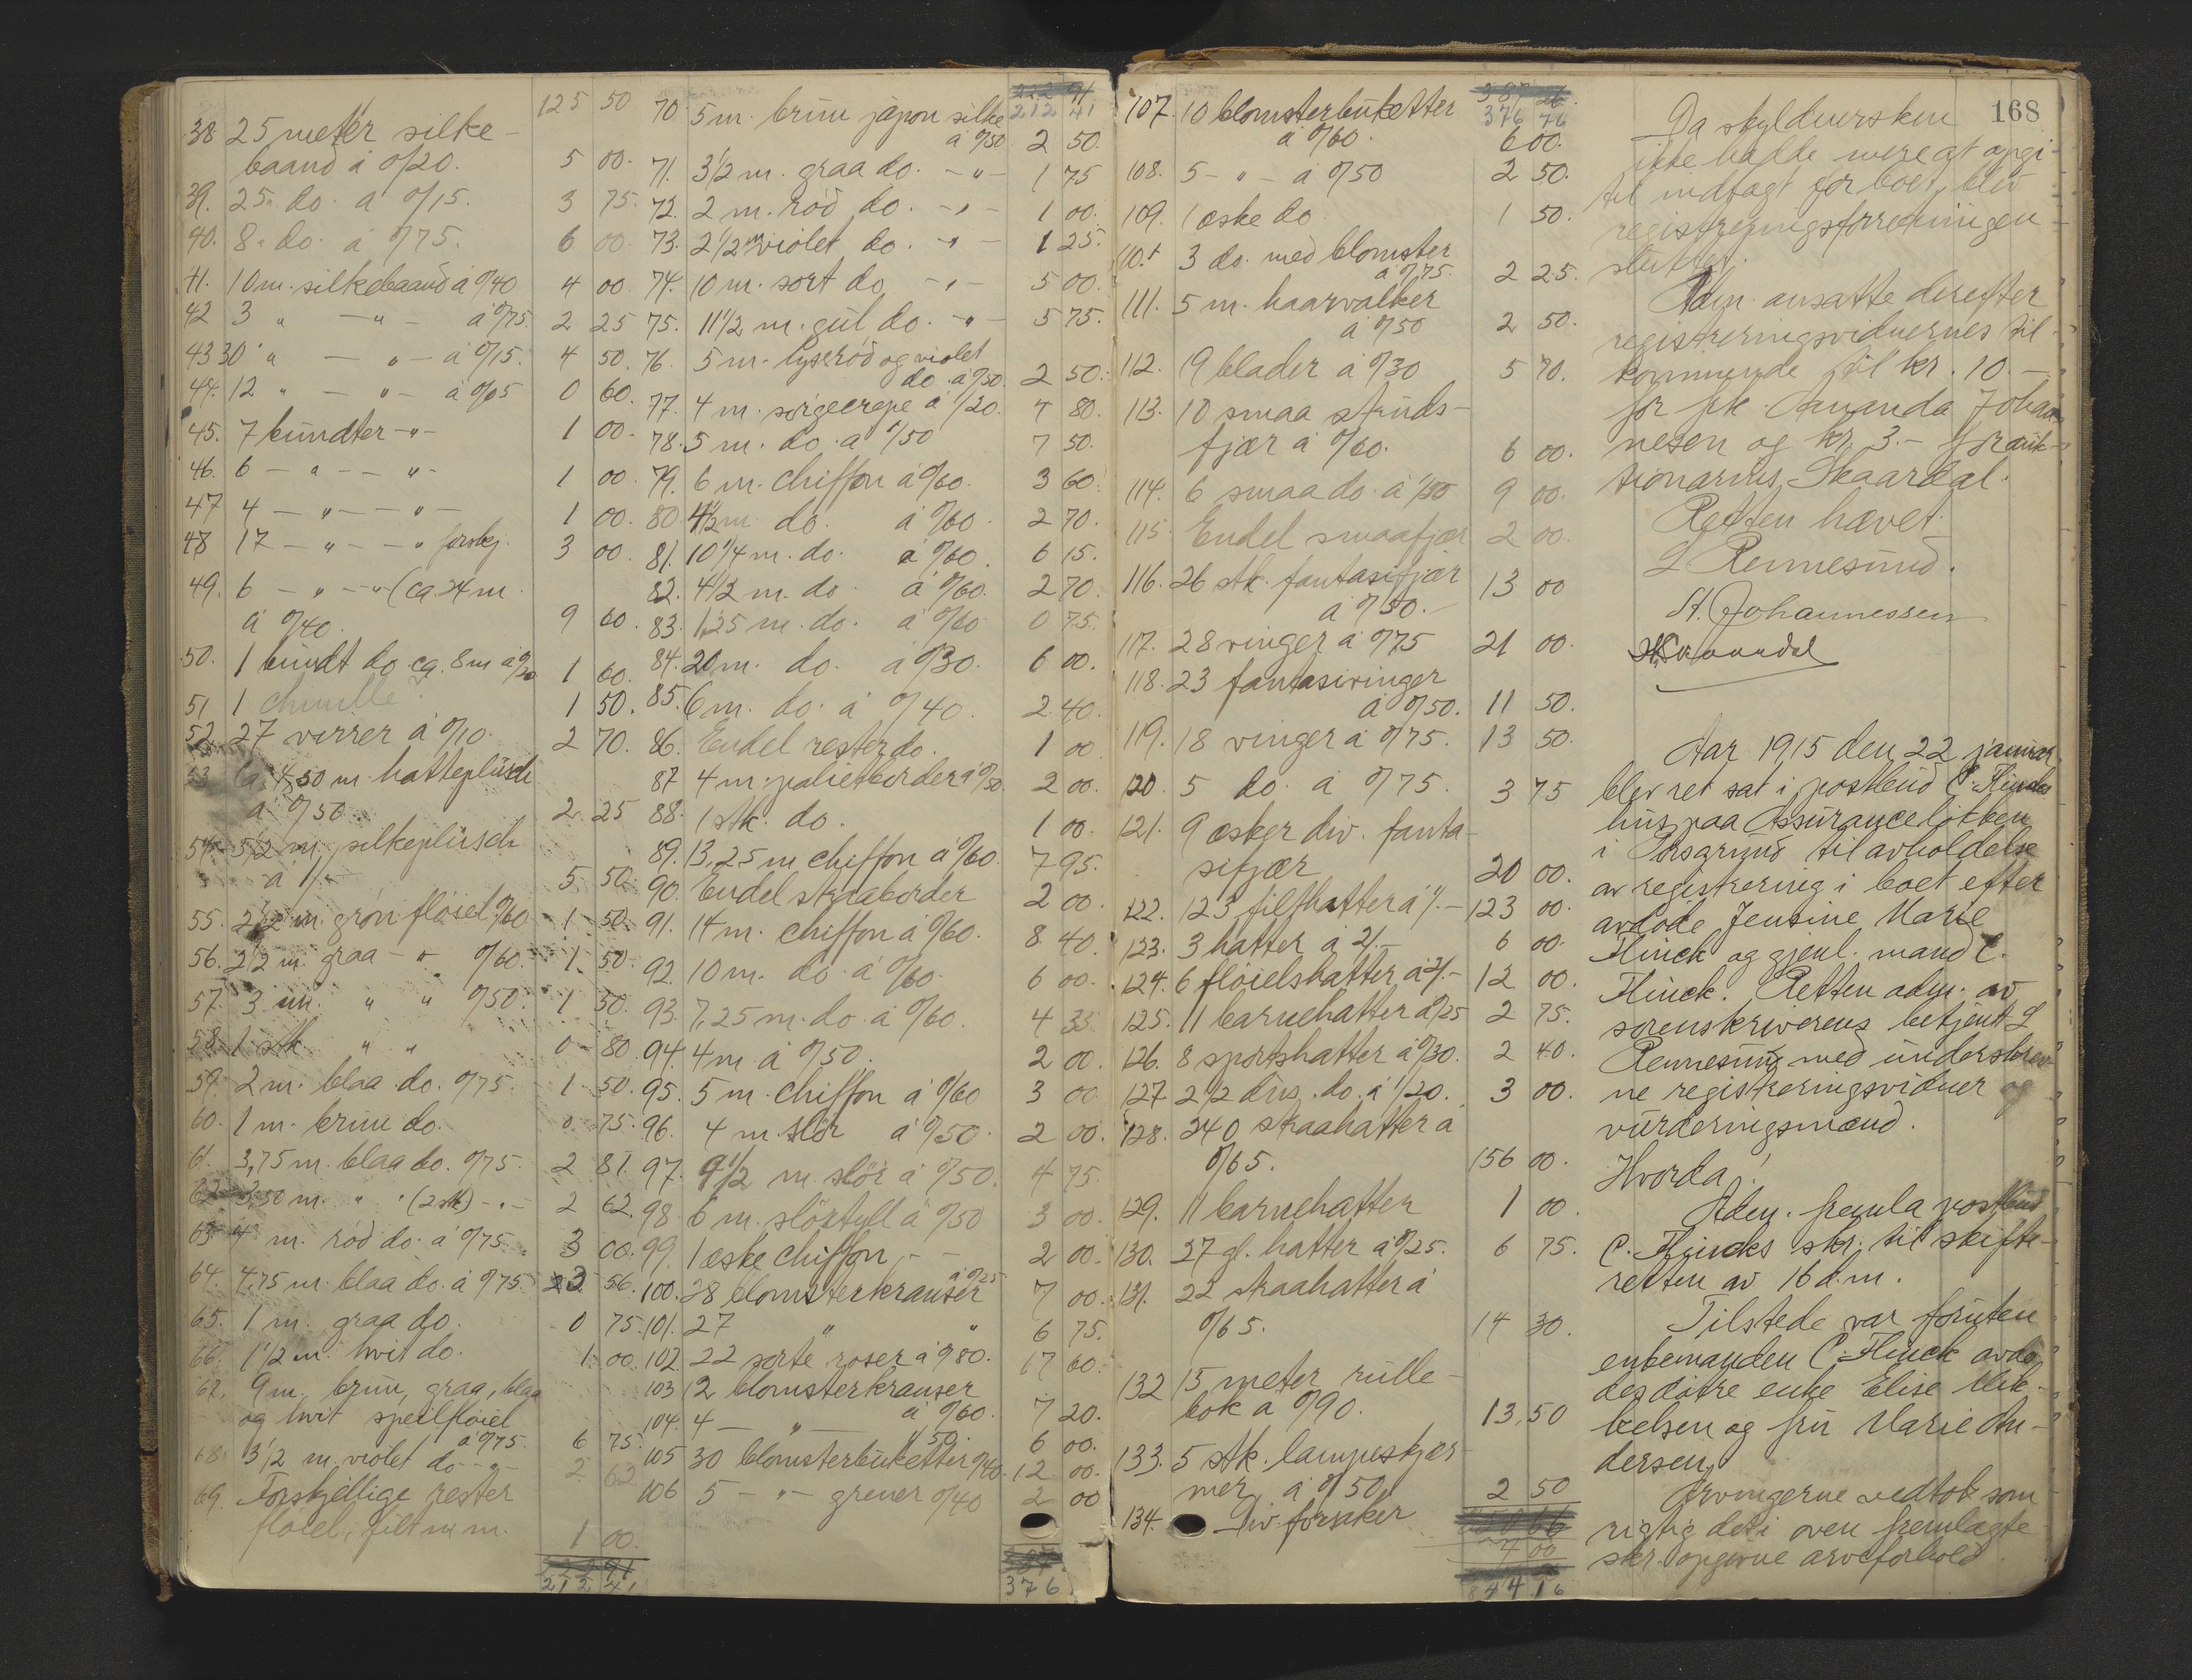 125 50
38 25 meter silke-
baand á 0/20. 5 00.
39. 25 " do. a 0/15. 3 75.
40. 8 " do. á 0/75. 6 00.
41. 10 m. silkebaand á 0/40 4 00
42 3 " — " — á 0/75. 2 25
43 30 " — " — á 0/15. 4 50.
44. 12 " — " — á 0/05 0 60.
45. 7 bundter — " — 1 00.
46. 6 — " — — " — 1 00.
47 4 — " — — " — 1 00.
48 17 — " — — " forskj. 3 00.
49. 6 — " — " (ca. 24 m.
á 0/40. 9 60.
50. 1 bundt do. ca. 8 m á 0/20 1 60.
51 1 chenille 1 50.
52. 27 virrer á 0/10. 2 70.
53 Ca. 4,50 m. hatteplüsch
á 0/50. 2 25
54. 5 1/2 m. silkeplüsch
á 1/- 5 50.
55. 2 1/2 m. grøn fløiel 0/60 1 50.
56. 2 1/2 m. graa — " 0/60. 1 50.
57. 3 m. " " 0/50. 1 50.
58. 1 stk " " 0 80
59. 2 m. blaa do. 0/75. 1 50.
60. 1 m. brun do. 0 75.
61. 3,75 m. blaa do. 0/75. 2 81.
62. 3,50 m. " " (2 stk) — " — 2 62.
63 4 m. rød do. á 0/75 3 00.
64. 4,75 m. blaa do. á 0/75 3 56.
65. 1 m. graa do. 0 75.
66. 1 1/2 m. hvit do. 1 00.
67. 9 m. brun, graa, blaa
og hvit speilfløiel
á 0/75. 6 75.
68. 3 1/2 m. violet do — " — 2 62.
69. Forskjellige rester
fløiel, filt m m. 1 00.
222 91
212 41
222 91
212 41
70. 5 m. brun japon silke
á 0/50 2 50.
71. 3 1/2 m. graa do. — " — 1 75
72. 2 m. rød do. — " — 1 00.
73. 2 1/2 m violet do. — " — 1 25.
74. 10 m. sort do — " — 5 00.
75. 11 1/2 m. gul do. — " — 5 75.
76. 5 m. lyserød og violet
do. á 0/50 2 50.
77. 4 m. sørgecrepe á 1/20. 4 80.
78. 5 m. do. a 1/50 7 50.
79. 6 m. chiffon á 0/60. 3 60.
80 4 1/2 m do. á 0/60. 2 70.
81. 10 1/4 m. do. á 0/60. 6 15.
82. 4 1/2 m. do. á 0/60. 2 70.
83. 1,25 m. do. á 0/60 0 75.
84. 20 m. do. á 0/30. 6 00.
85. 6 m. do. á 0/40. 2 40.
86. Endel rester do. 1 00
87 4 m. palietborder á 0/50. 2 00.
88. 1 stk. do. 1 00.
89. 13,25 m chiffon á 0/60. 7 95.
90. Endel straaborder 2 00.
91. 14 m. chiffon á 0/60. 8 40.
92. 10 m. do. á 0/60. 6 00.
93. 7,25 m. do. á 0/60. 4 35
94. 4 m á 0/50. 2 00.
95. 5 m. chiffon á 0/60 3 00
96. 4 m. slør á 0/50. 2 00.
97. 9 1/2 m. slør á 0/50. 4 75.
98. 6 m. slørtyll á 0/50 3 00.
99. 1 æske chiffon — — 2 00.
100. 28 blomsterkranser á 0/25 7 00.
101. 27 " " 6 75.
102. 22 sorte roser á 0/80. 17 60.
103 12 blomsterkranser
á 0/60. 7 20.
104. 4 — " — 1/50. 6 00.
105 30 blomsterbuketter 0/40. 12 00.
106 5 — " — grener 0/40 2 00
376
387 26.
376 76
107. 10 blomsterbuketter
á 0/60. 6 00.
108. 5 — " — á 0/50 2 50.
109. 1 æske do. 1 50.
110. 3 do. med blomster
á 0/75. 2 25.
111. 5 m. haarvalker
á 0/50 2 50.
112. 19 blader á 0/30 5 70.
113. 10 smaa struds-
fjær á 0/60. 6 00.
114. 6 smaa do. á 1/50 9 00.
115. Endel smaafjær 2 00.
116. 26 stk. fantasifjær
á 0/50. 13 00
117. 28 vinger á 0/75 21 00.
118. 23 fantasivinger
á 0/50. 11 50.
119. 18 vinger á 0/75. 13 50.
120. 5 do. á 0/75. 3 75
121. 9 æsker div. fanta-
sifjær 20 00.
122. 123 filthatter á 1/- 123 00.
123. 3 hatter á 2/- 6 00.
124. 6 fløielshatter á 2/- 12 00.
125. 11 barnehatter á 0/25 2 75.
126. 8 sportshatter á 0/30. 2 40.
127 2 1/2 dus. do. á 1/20. 3 00.
128. 240 straahatter á
0/65. 156 00.
129. 11 barnehatter 1 00.
130. 27 gl. hatter á 0/25. 6 75.
131. 22 straahatter á
0/65. 14 30.
132 15 meter rulle-
bok á 0/90. 13,50
133. 5 stk. lampeskjær-
mer á 0/50 2 50
134. Div forsaker
4 00
844 16
168
Da skyldnersken
ikke hadde mere at opgi
til indtægt for boet, blev
registreringsforretningen
sluttet.
Adm. ansatte derefter
registreringsvidnernes til-
kommende til kr. 10.—
for frk. Amanda Johan-
nesen og kr. 3.— for auk-
tionarius Skaardal.
Retten hævet.
L Rennesund.
A. Johannessen
HSkaardal
Aar 1915 den 22 januar
blev ret sat i postbud C. Flincks
hus paa Assuranceløkken
i Porsgrund til avholdelse
av registrering i boet efter
avdøde Jensine Marie
Flinck og gjenl. mand C.
Flinck. Retten adm. av
sorenskriverens betjent L
Rennesund med underskrev-
ne registreringsvidner og
vurderingsmænd.
Hvorda!
Adm. fremla postbud
C. Flincks skr. til skifte-
retten av 16 d.m.
Tilstede var foruten
enkemanden C. Flinck avdø-
des døtre enke Elise Mik-
kelsen og fru Marie An-
dersen.
Arvingerne vedtok som
rigtig det i oven fremlagte
skr. opgivne arveforhold